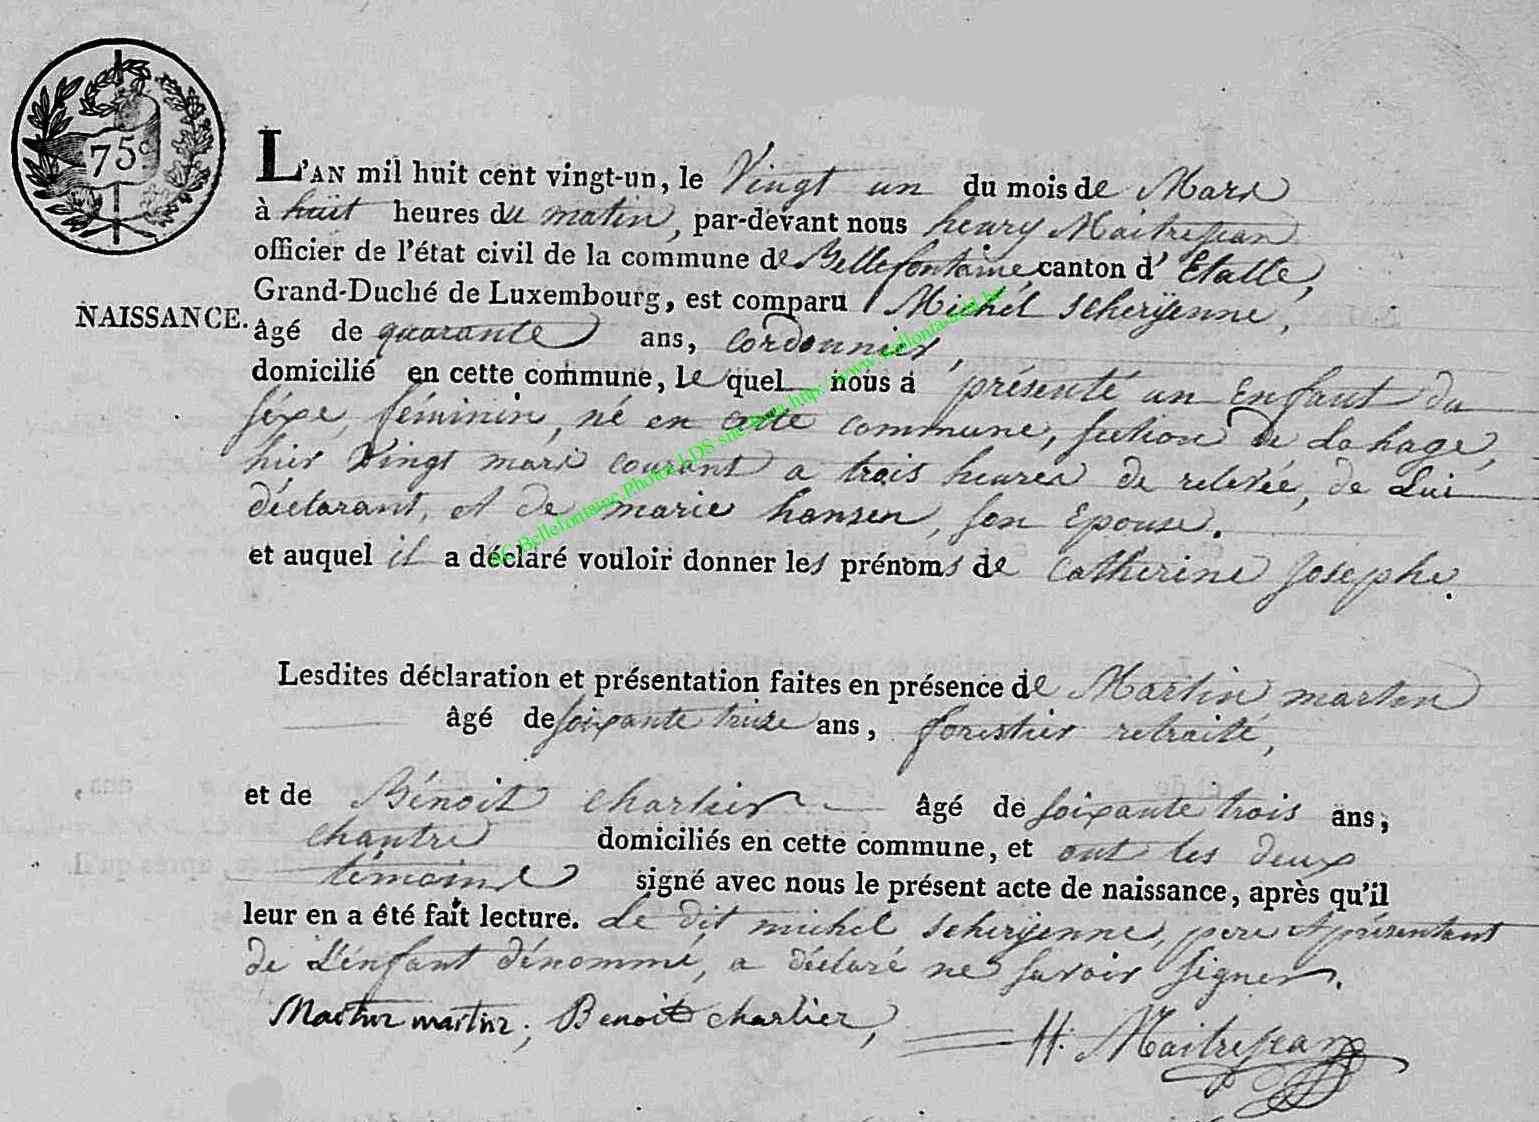 75c
NAISSANCE.
L'AN mil huit cent vingt-un, le Vingt un du mois de Mars
à huit heures du matin, par-devant nous henry Maitrejean
officier de l'état civil de la commune de Bellefontaine, canton d'Etalle,
Grand-Duché de Luxembourg, est comparu Michel Scherÿenne,
âgé de quarante ans, Cordonnier,
domicilié en cette commune, le quel nous a présenté un Enfant du
séxe, féminin, né en cette commune, section de Lahage,
hier Vingt mars courant a trois heures de relevée, de Lui
déclarant, et de marie hansen, son Epouse.
et auquel il a déclaré vouloir donner les prénoms de Catherine Josephe.
Lesdites déclaration et présentation faites en présence de Martin marton
âgé de soixante treize ans, forestier retraité,
et de Bénoit charlier âgé de soixante trois ans,
chantre domiciliés en cette commune, et ont les deux
témoins signé avec nous le présent acte de naissance, après qu'il
leur en a été fait lecture. Le dit michel scherÿenne, pere et présentant
de L'énfant dénommé, a déclaré ne savoir signer.
Martin martin; Benoit charlier,
H: Maitrejean
AC Bellefontaine Photos LDS sne